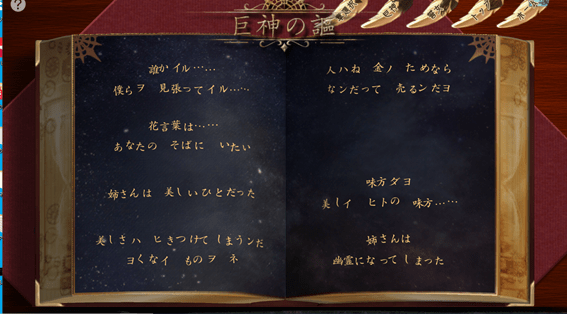 巨神の謳
誰かイル……
僕らヲ 見張ってイル……
花言葉は……
あなたの そばに いたい
姉さんは 美しいひとだった
美しさハ ヒきつけて しまうンだ
ヨくなイ ものヲ ネ
人ハね 金ノ ためなら
なンだって 売るンだヨ
味方ダヨ
美しイ ヒトの 味方……
姉さんは
幽霊になってしまった